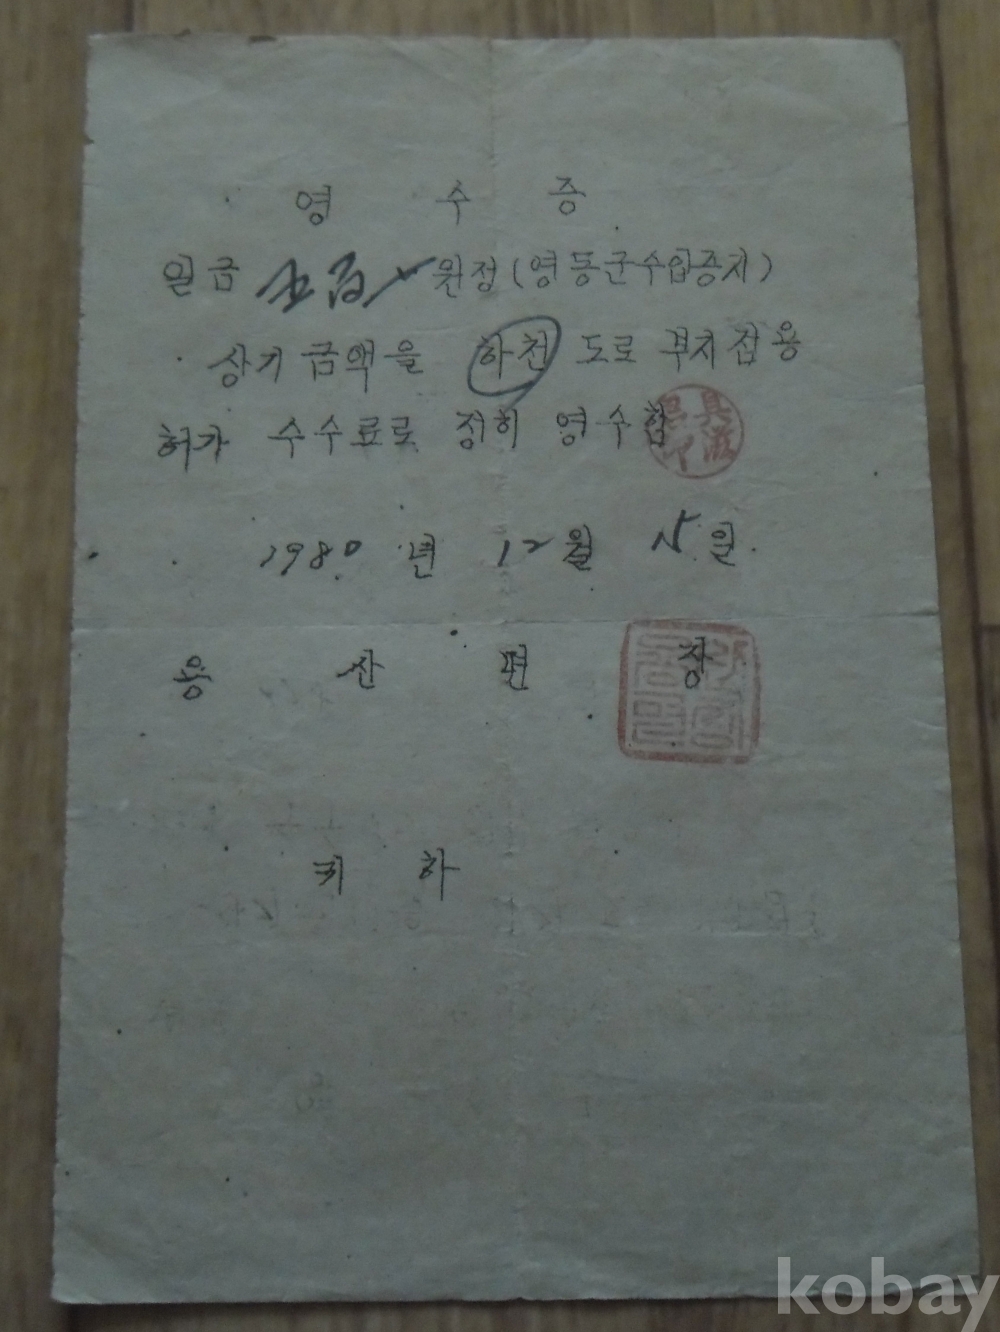 영 수 증
일금 五百 원정 (영동군수입증지)
상기 금액을 하천 도로 부지점용
허가 수수료로 정히 영수함
1980년 12월 15일
용 산 면 장
귀 하
kobay